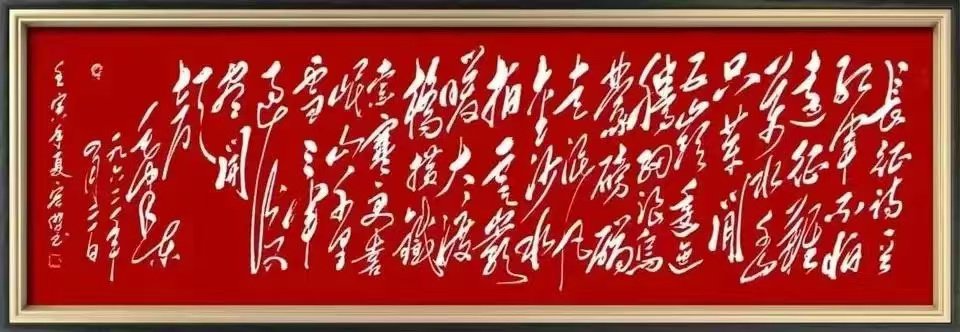 长征诗一首
红军不怕
遠征難
萬水千山
只等閒
五嶺逶迤
騰細浪烏
蒙磅礴
走泥丸
金沙水
拍雲崖
暖大渡
橋横鐵
索寒更喜
岷山千里
雪三軍
過後
盡開
顔
毛澤東
一九六二年
四月二十日
壬寅年夏